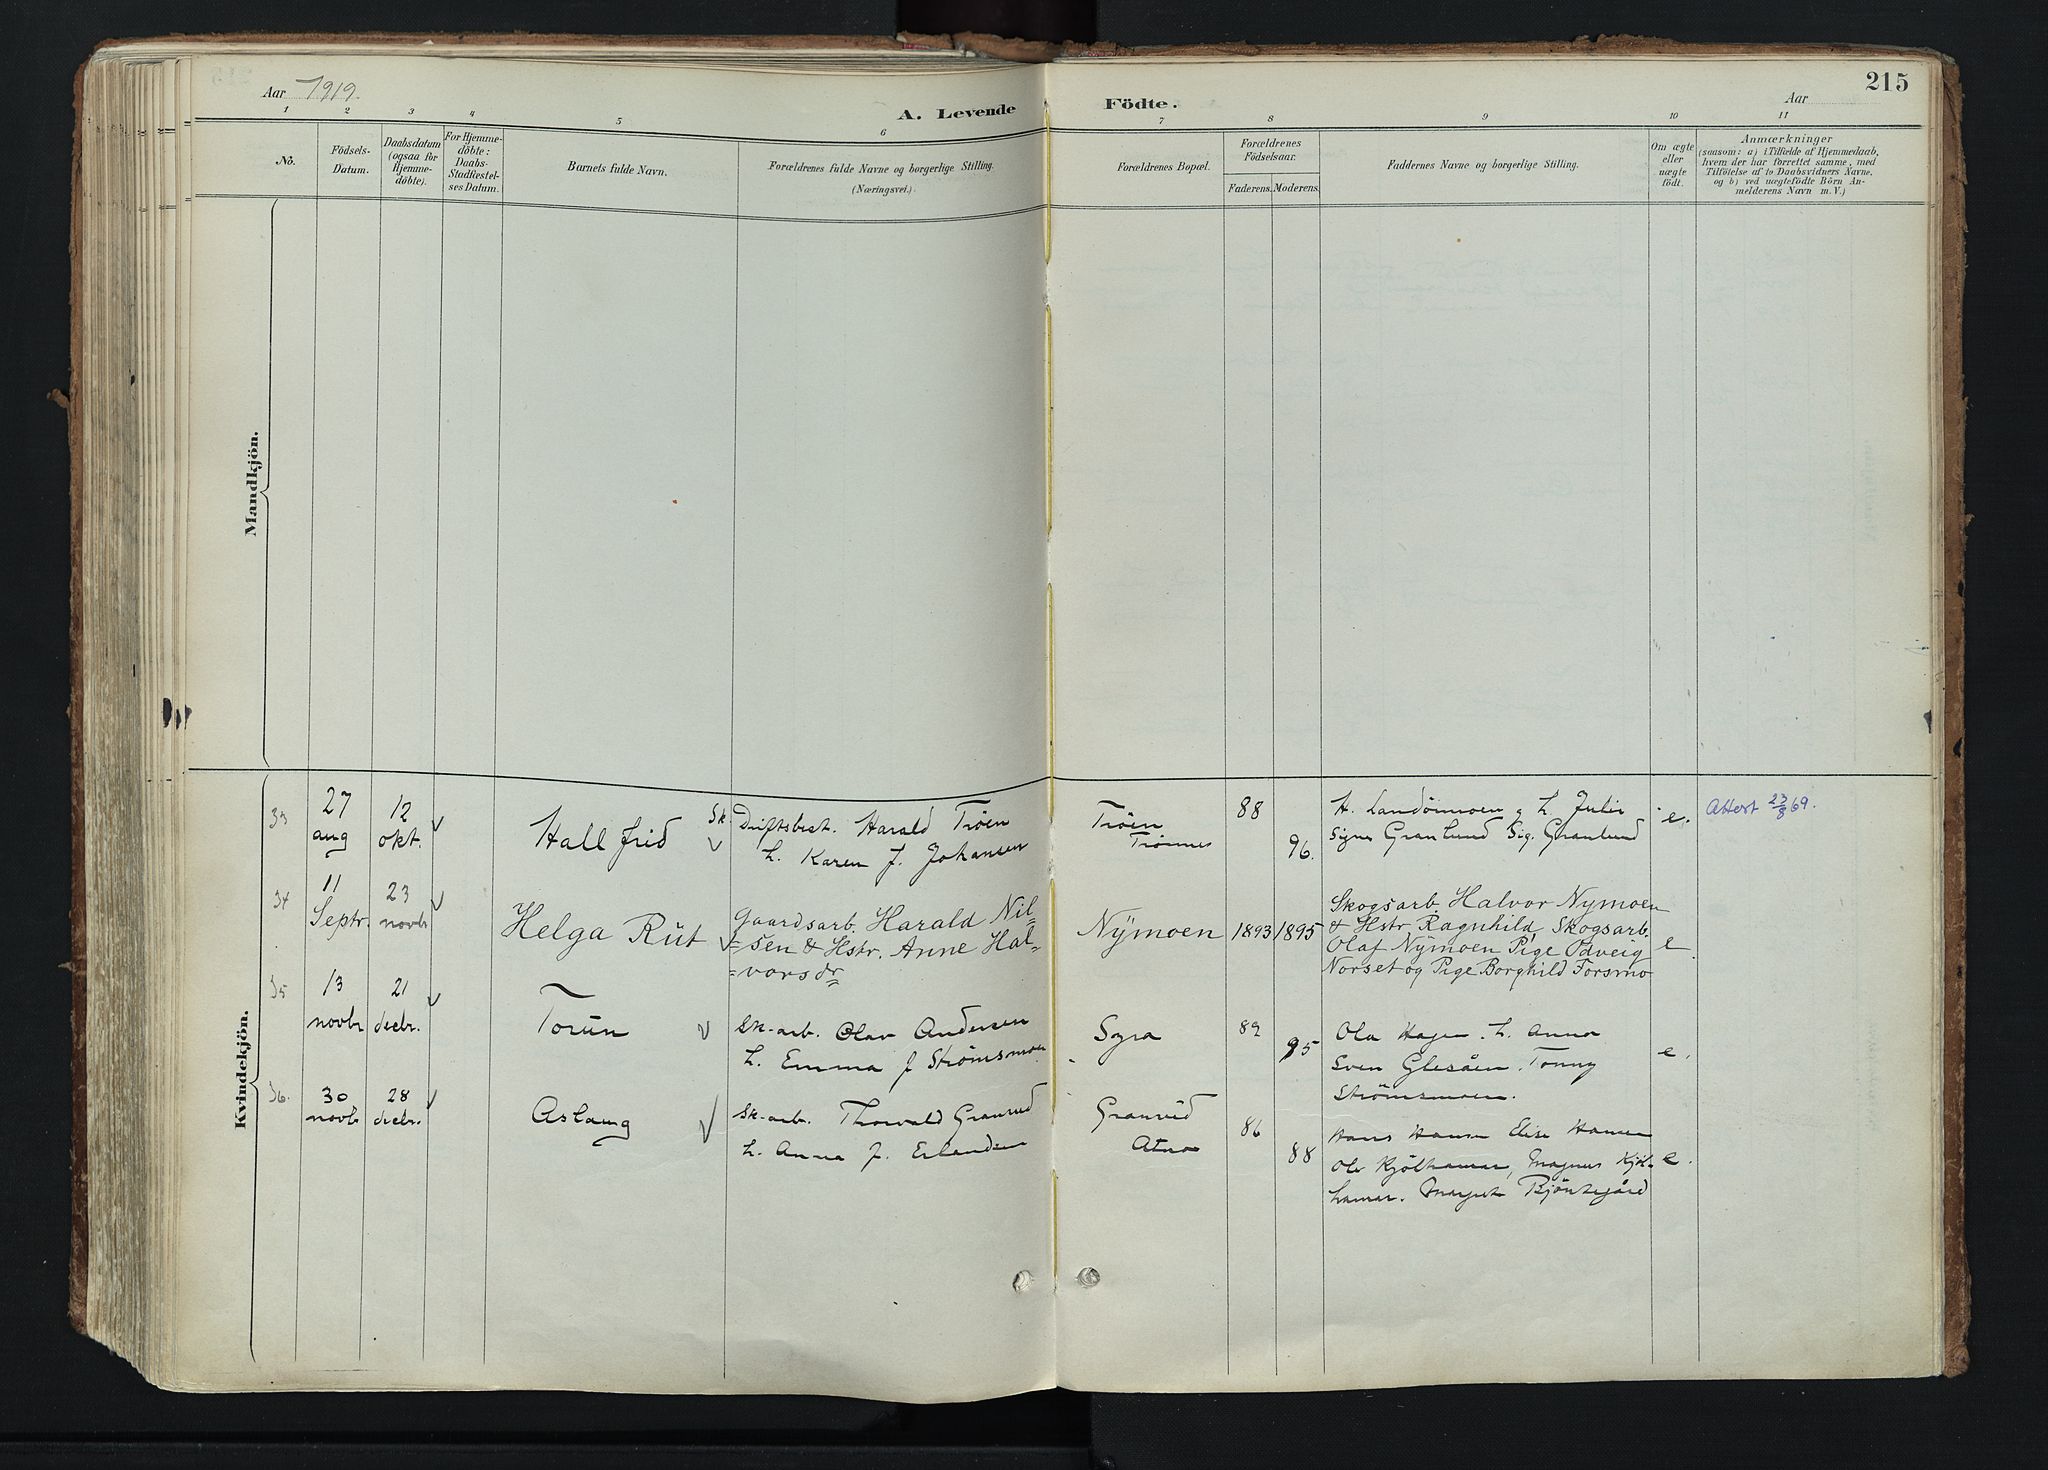 Aar 1919.
A. Levende Födte.
Aar
215
1 2 3 4 5 6 7 8 9 10 11
No.
Födsels-
Datum.
Daabsdatum
(ogsaa for
Hjemme-
döbte).
For Hjemme-
döbte:
Daabs-
Stadfæstel-
ses Datum.
Barnets fulde Navn.
Forældrenes fulde Navne og borgerlige Stilling.
(Næringsvei.)
Forældrenes Bopæl.
Forældrenes
Födselsaar.
Faderens. Moderens.
Faddernes Navne og borgerlige Stilling.
Om ægte
eller
uægte
födt.
Anmærkninger
(saasom: a) i Tilfælde af Hjemmedaab,
hvem der har forrettet samme, med
Tilföielse af to Daabsvidners Navne,
og b) ved uægtefödte Börn An-
melderens Navn m. V.)
Mandkjön.
Kvindekjön.
33
27
aug
12
okt.
Hallfrid
Sk.
Driftsbest. Harald Tröen
h. Karen f. Johansen
Tröen
Trönnes
88
96.
H. Landöimoen og h. Julie
Signe Granlund Sig. Granlund
e.
Attest 23/8 69.
34
11
Septr.
23
novbr
Helga Rut
Gaardsarb. Harald Nil=
=sen & Hstr. Anne Hal=
=vorsdr
Nymoen
1893
1895
Skogsarb. Halvor Nymoen
& Hstr. Ragnhild, Skogsarb.
Olaf Nymoen Pige Odveig
Norset og Pige Borghild Forsmo
e
35
13
novbr
21
decbr.
Torun
Sk-arb. Olav Andersen
h. Emma f Strömsmoen
Sygra
89
95
Ola Hagen. h. Anna
Sven Glesåen. Tonny
Strömsmoen.
e.
36.
30
novbr
28
decbr.
Aslaug
Sk-arb. Thorvald Granrud
h. Anna f. Erlandsen
Granrud
Atna
86
88
Hans Hansen Elise Hansen
Ole Kjölhamar, Magnus Kjöl-
hamar. Margit
e.